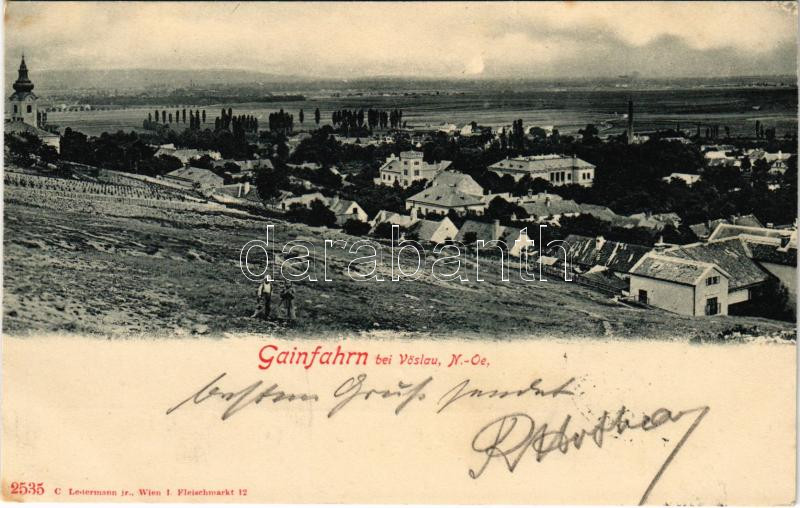 darabanth
Gainfahrn bei Vöslau, N.-Oe,
besten Gruß sendet
2535 C Ledermann jr., Wien I. Fleischmarkt 12